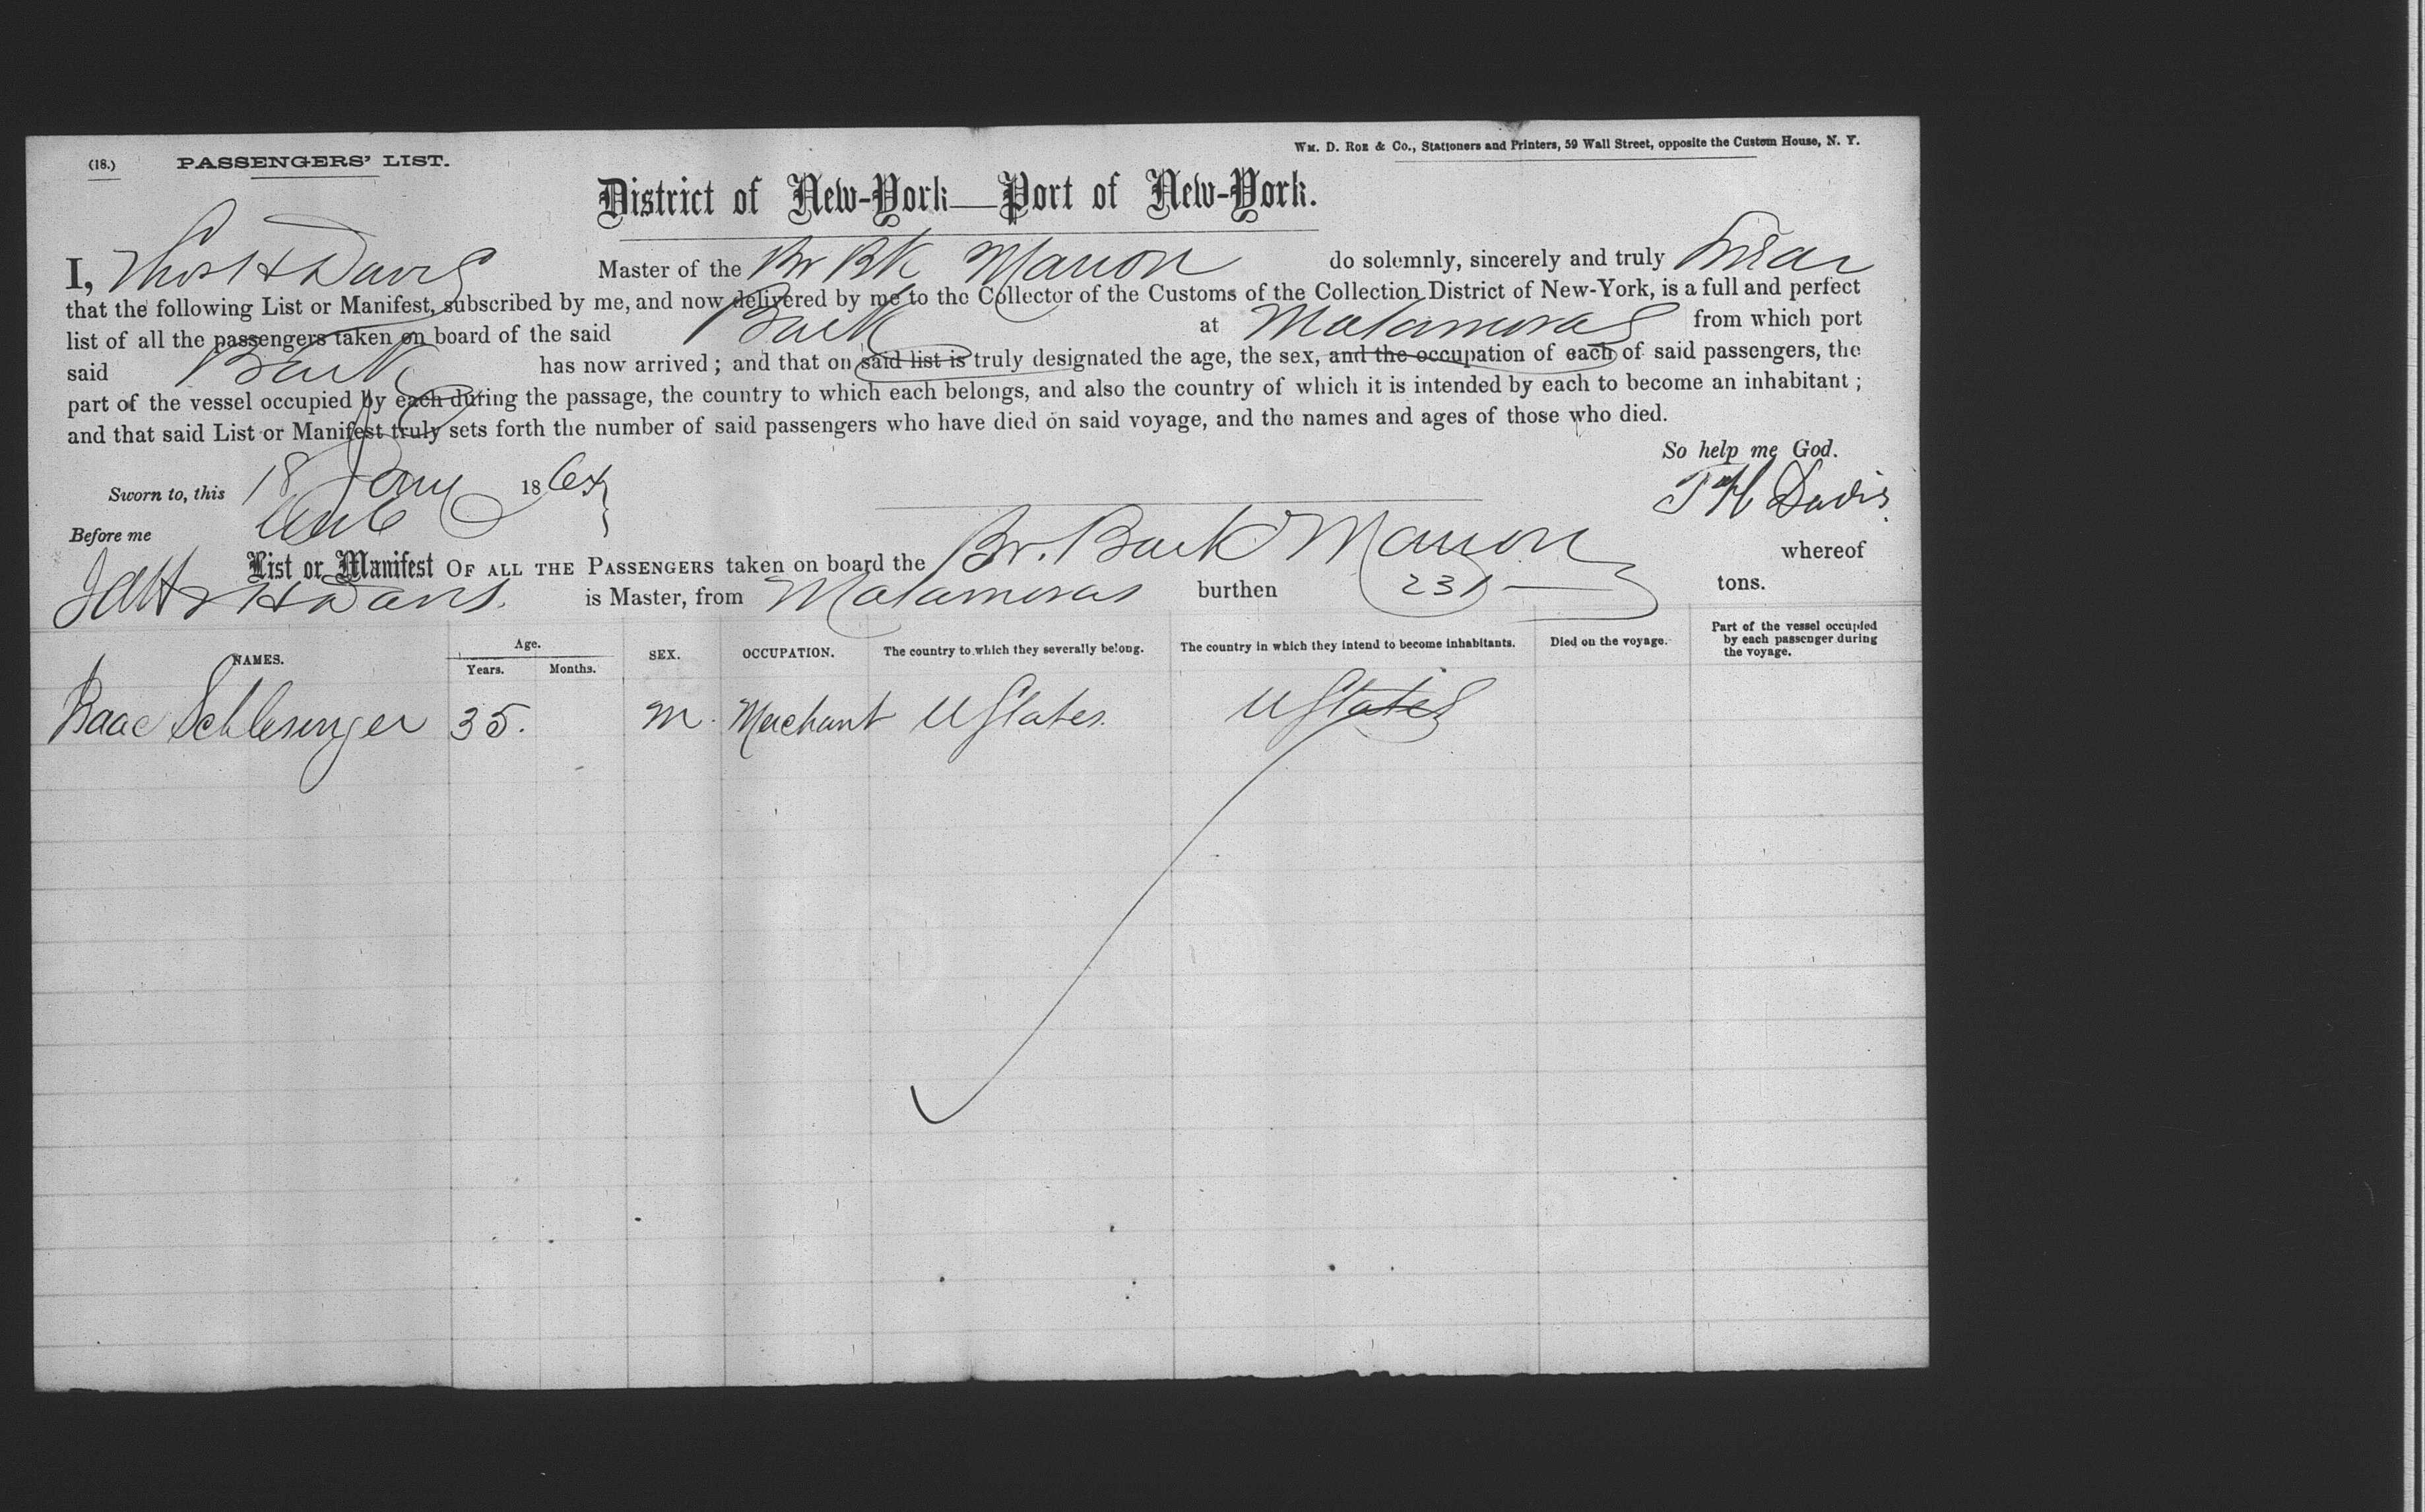 (18.) PASSENGERS' LIST.
Wm. D. Roe & Co., Stationers and Printers, 59 Wall Street, opposite the Custom House, N. Y.
District of New-York—Port of New-York.
I, Thos H Davis Master of the Br Bk Marion do solemnly, sincerely and truly swear
that the following List or Manifest, subscribed by me, and now delivered by me to the Collector of the Customs of the Collection District of New-York, is a full and perfect
list of all the passengers taken on board of the said Bark at Matamoras from which port
said Bark has now arrived; and that on said list is truly designated the age, the sex, and the occupation of each of said passengers, the
part of the vessel occupied by each during the passage, the country to which each belongs, and also the country of which it is intended by each to become an inhabitant;
and that said List or Manifest truly sets forth the number of said passengers who have died on said voyage, and the names and ages of those who died.
So help me God.
Sworn to, this 18 Jany 1864
T H Davis
Before me
List or Manifest OF ALL THE PASSENGERS taken on board the Br. Bark Marion whereof
H Davis. is Master, from Matamoras burthen 231 tons.
NAMES. Age. Years. Months. SEX. OCCUPATION. The country to which they severally belong. The country in which they intend to become inhabitants. Died on the voyage. Part of the vessel occupied by each passenger during the voyage.
Isaac Schlesinger 35. M. Merchant U States. U States